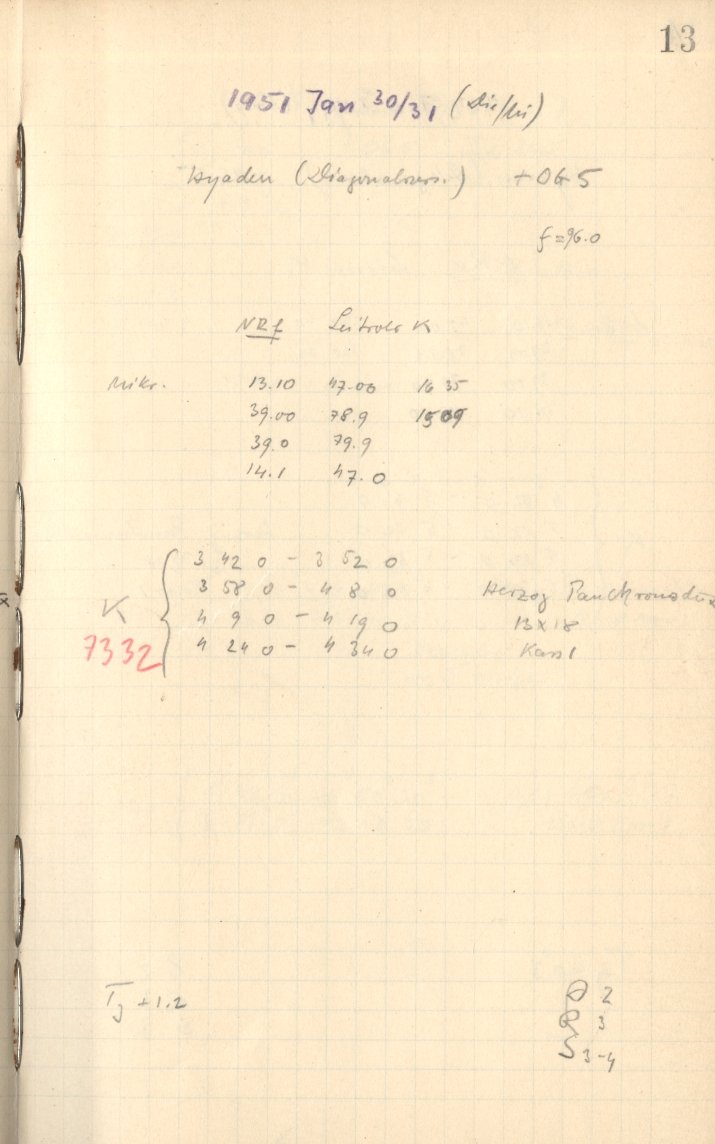 13
1951 Jan 30/31 (Die/Mi)
Hyaden (Diagonalvers.) + OG 5
f = 96.0
NRf Leitrohr K
Mikr. 13.10 47.00 16 35
39.00 78.9 1509
39.0 79.9
14.1 47.0
3 42 0 - 3 52 0
3 58 0 - 4 8 0 Herzog
K 4 9 0 - 4 19 0 13x18
7332 4 24 0 - 4 34 0 Kass 1
+1.2 2
R 3
S 3-4